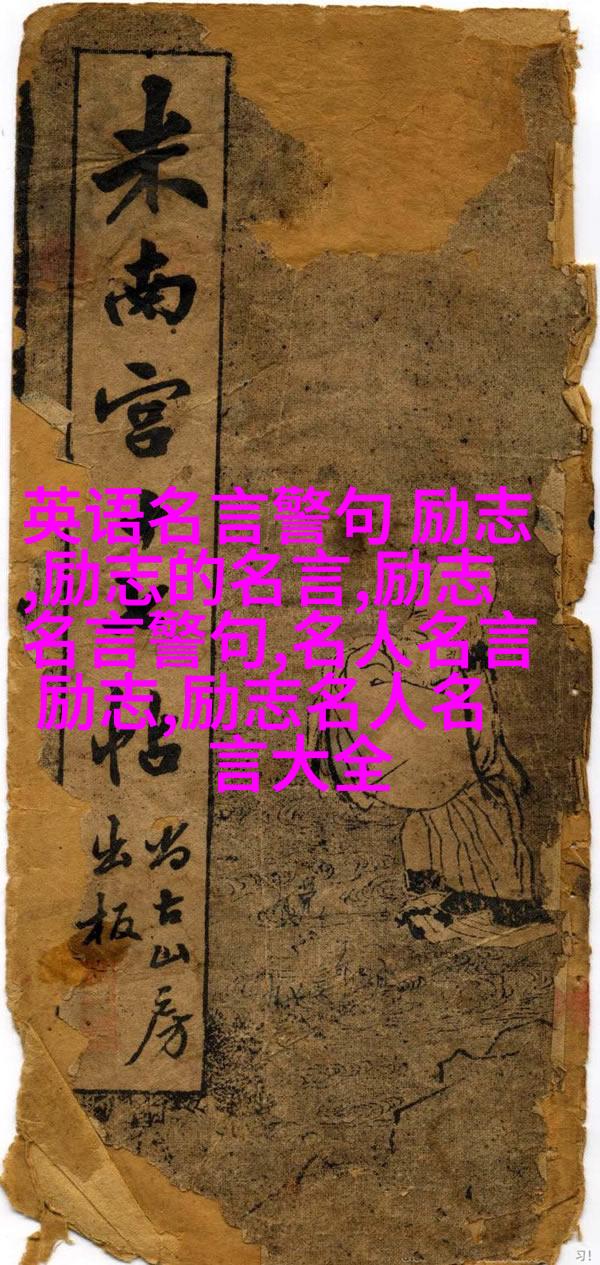 米南宫
帖
尚古山房
出板
英语名言警句 励志
,励志的名言,励志
名言警句,名人名言
励志,励志名人名
言大全
习!